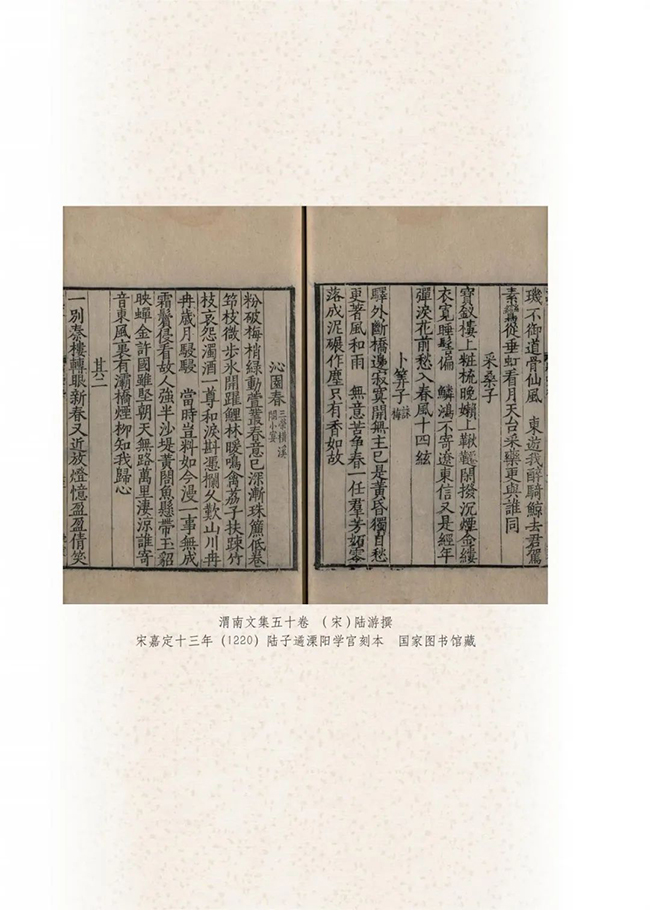 璣不御道骨仙風　東遊我醉騎鯨去君駕
素鸞從垂虹看月天台采藥更與誰同
采桑子
寶釵樓上粧梳晚嬾上鞦韆閑撥沉煙金縷
衣寬睡髻偏　鱗鴻不寄遼東信又是經年
彈淚花前愁入春風十四絃
卜算子 詠梅
驛外斷橋邊寂寞開無主已是黃昏獨自愁
更著風和雨　無意苦爭春一任羣芳妬零
落成泥碾作塵只有香如故
沁園春 三榮橫溪閣小宴
粉破梅梢綠動萱叢春意已深漸珠簾低卷
筇枝微步冰開躍鯉林暖鳴禽荔子扶踈竹
枝哀怨濁酒一尊和淚斟憑欄久歎山川冉
冉歲月駸駸　當時豈料如今漫一事無成
霜鬢侵看故人強半沙堤黃閤魚懸帶玉貂
映蟬金許國雖堅朝天無路萬里淒涼誰寄
音東風裏有灞橋煙柳知我歸心
其二
一別秦樓轉眼新春又近放燈憶盈盈倩笑
渭南文集五十卷　（宋）陆游撰
宋嘉定十三年（1220）陆子遹溧阳学宫刻本　国家图书馆藏